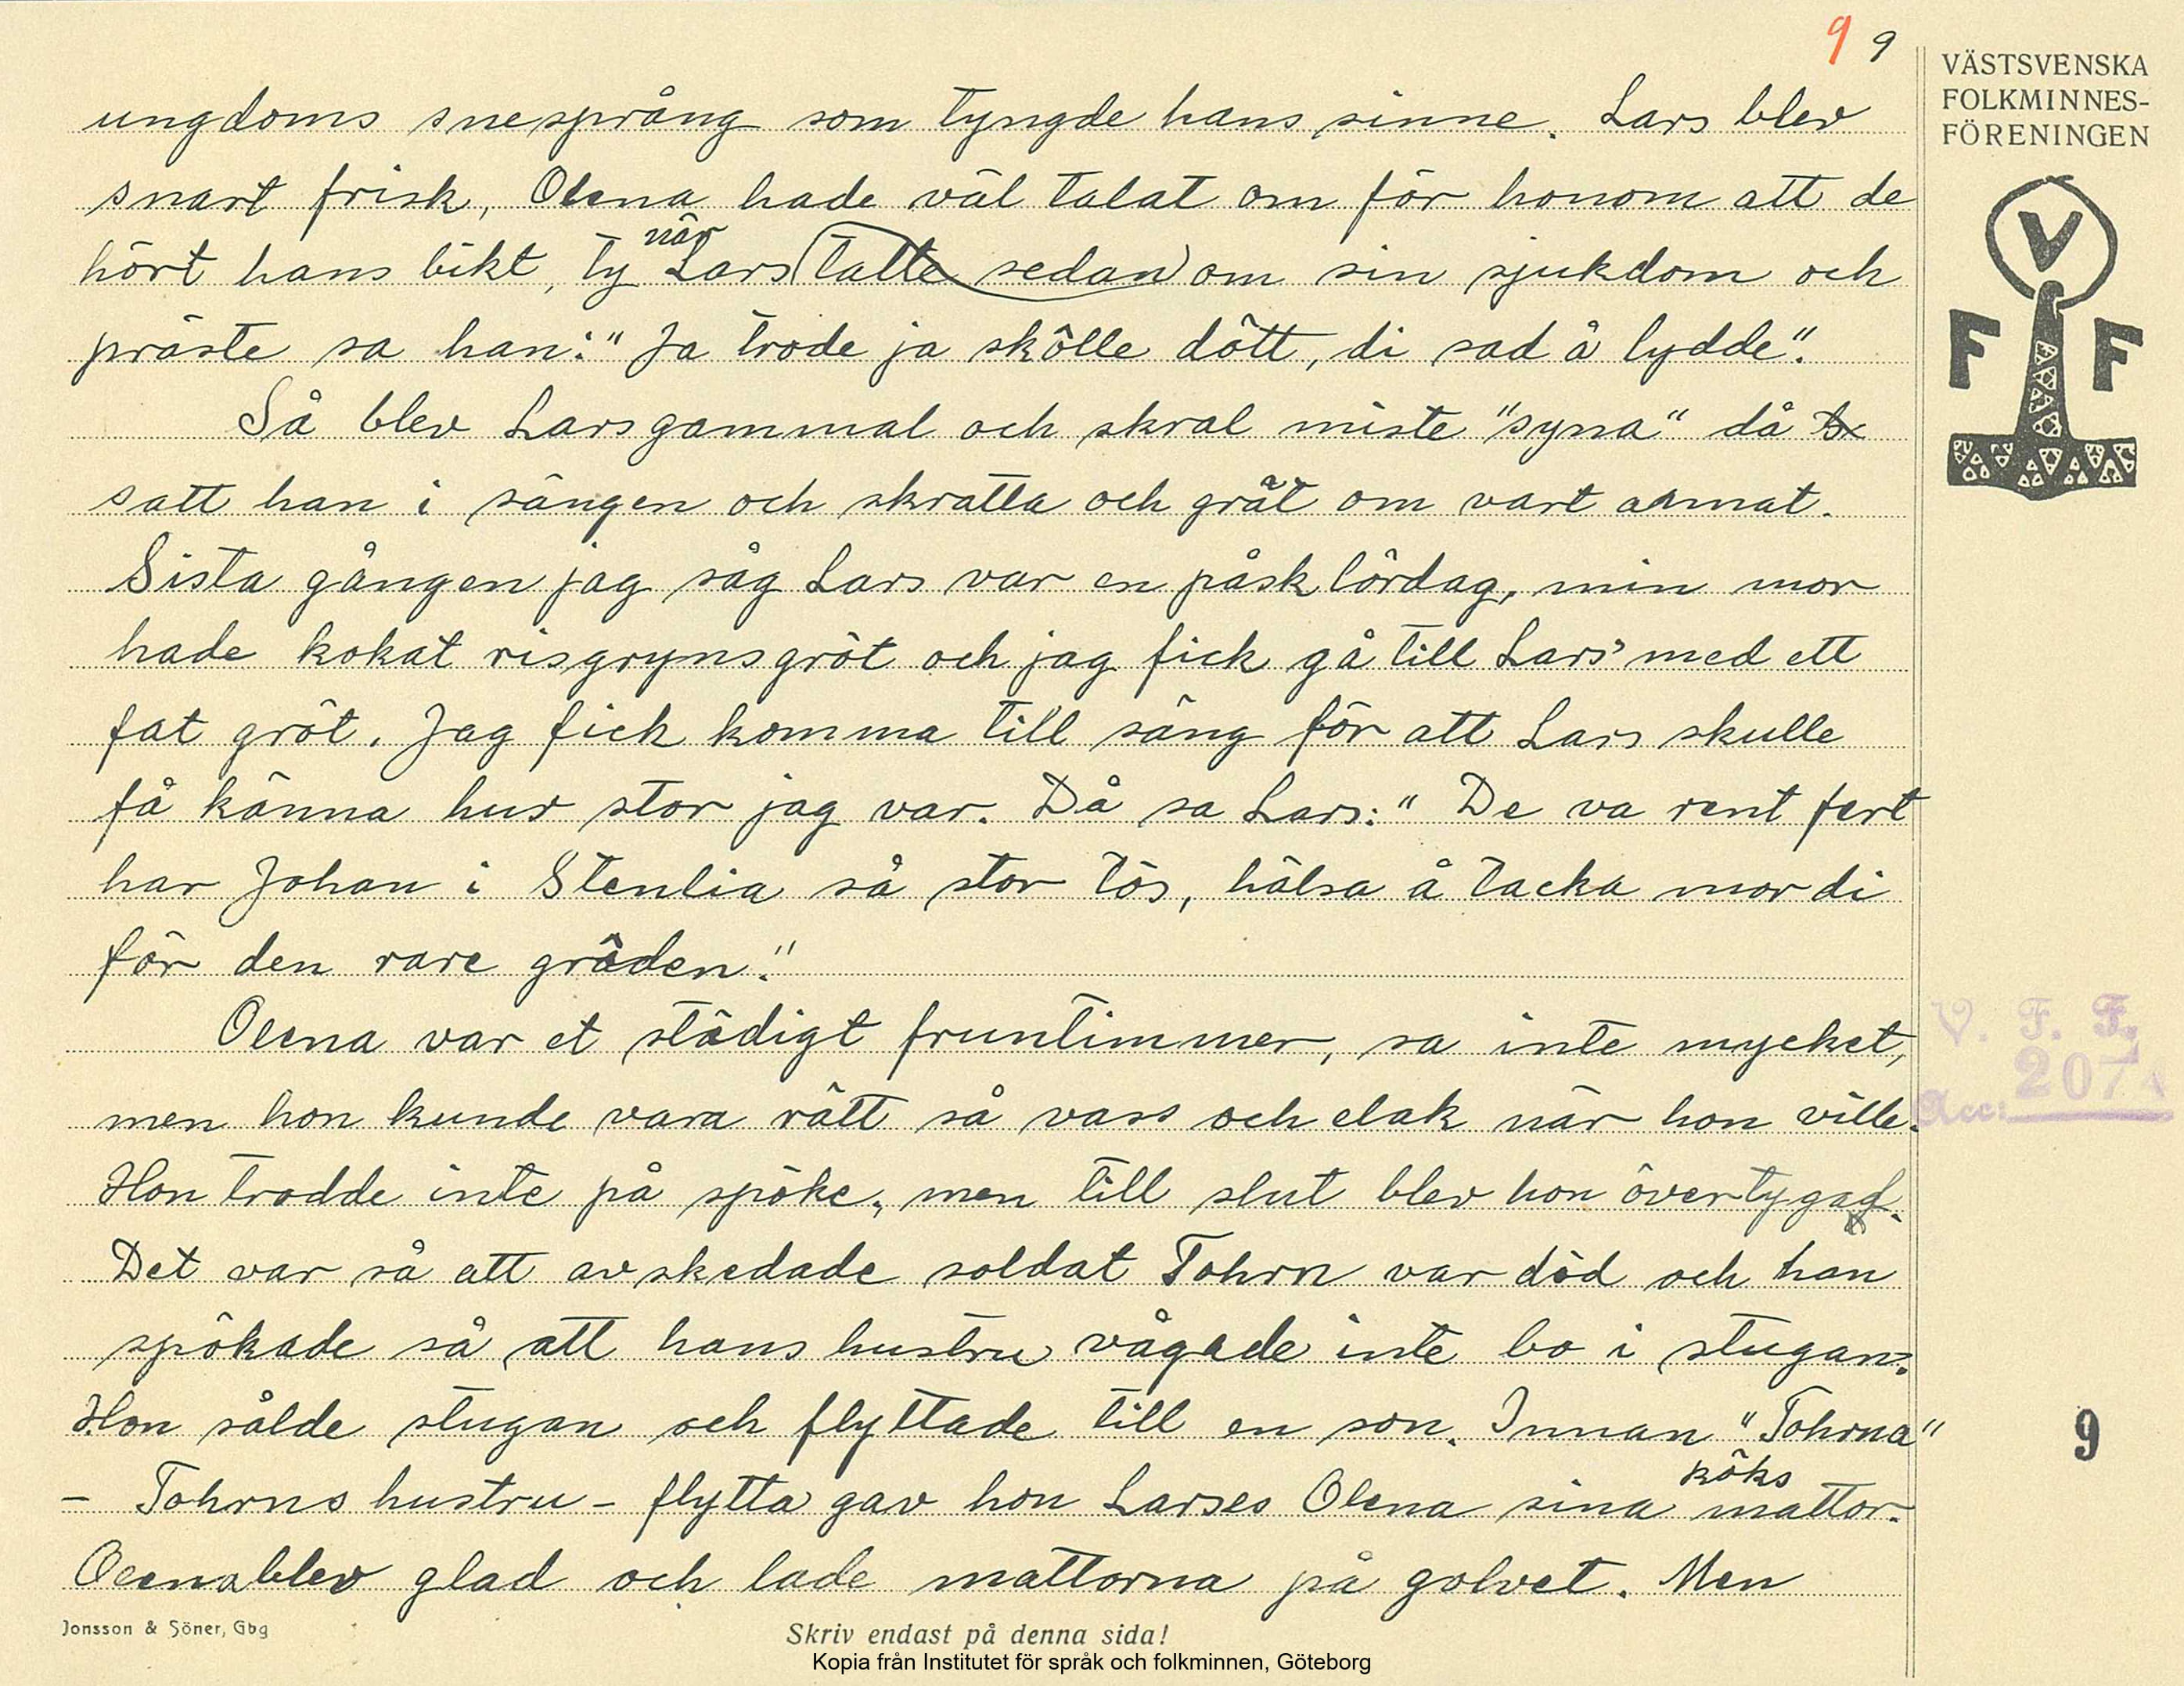 9 9
VÄSTSVENSKA
FOLKMINNES-
FÖRENINGEN
V
F F
ungdoms snesprång som tyngde hans sinne. Lars blev
snart frisk, Olena hade väl talat om för honom att de
hört hans bikt, ty när Lars talte sedan om sin sjukdom och
präste sa han: "Ja trode ja skölle dött, di sad å lydde".
Så blev Lars gammal och skral miste "syna" då
satt han i sängen och skratta och grät om vart annat.
Sista gången jag såg Lars var en påsklördag, min mor
hade kokat risgrynsgröt och jag fick gå till Lars' med ett
fat gröt. Jag fick komma till säng för att Lars skulle
få känna hur stor jag var. Då sa Lars: "De va rent fert
har Johan i Stenlia så stor tös, hälsa å tacka mor di
för den rare gröden."
Olena var et städigt fruntimmer, sa inte mycket,
men hon kunde vara rätt så vass och elak när hon ville.
Hon trodde inte på spöke, men till slut blev hon övertygad.
Det var så att avskedade soldat Tohrn var död och han
spökade så att hans hustru vågade inte bo i stugan.
Hon sålde stugan och flyttade till en son. Innan "Tohrna"
- Tohrns hustru - flytta gav hon Larses Olena sina köks mattor.
Olena blev glad och lade mattorna på golvet. Men
V. F. F.
Acc: 207
9
Jonsson & Söner, Gbg
Skriv endast på denna sida!
Kopia från Institutet för språk och folkminnen, Göteborg